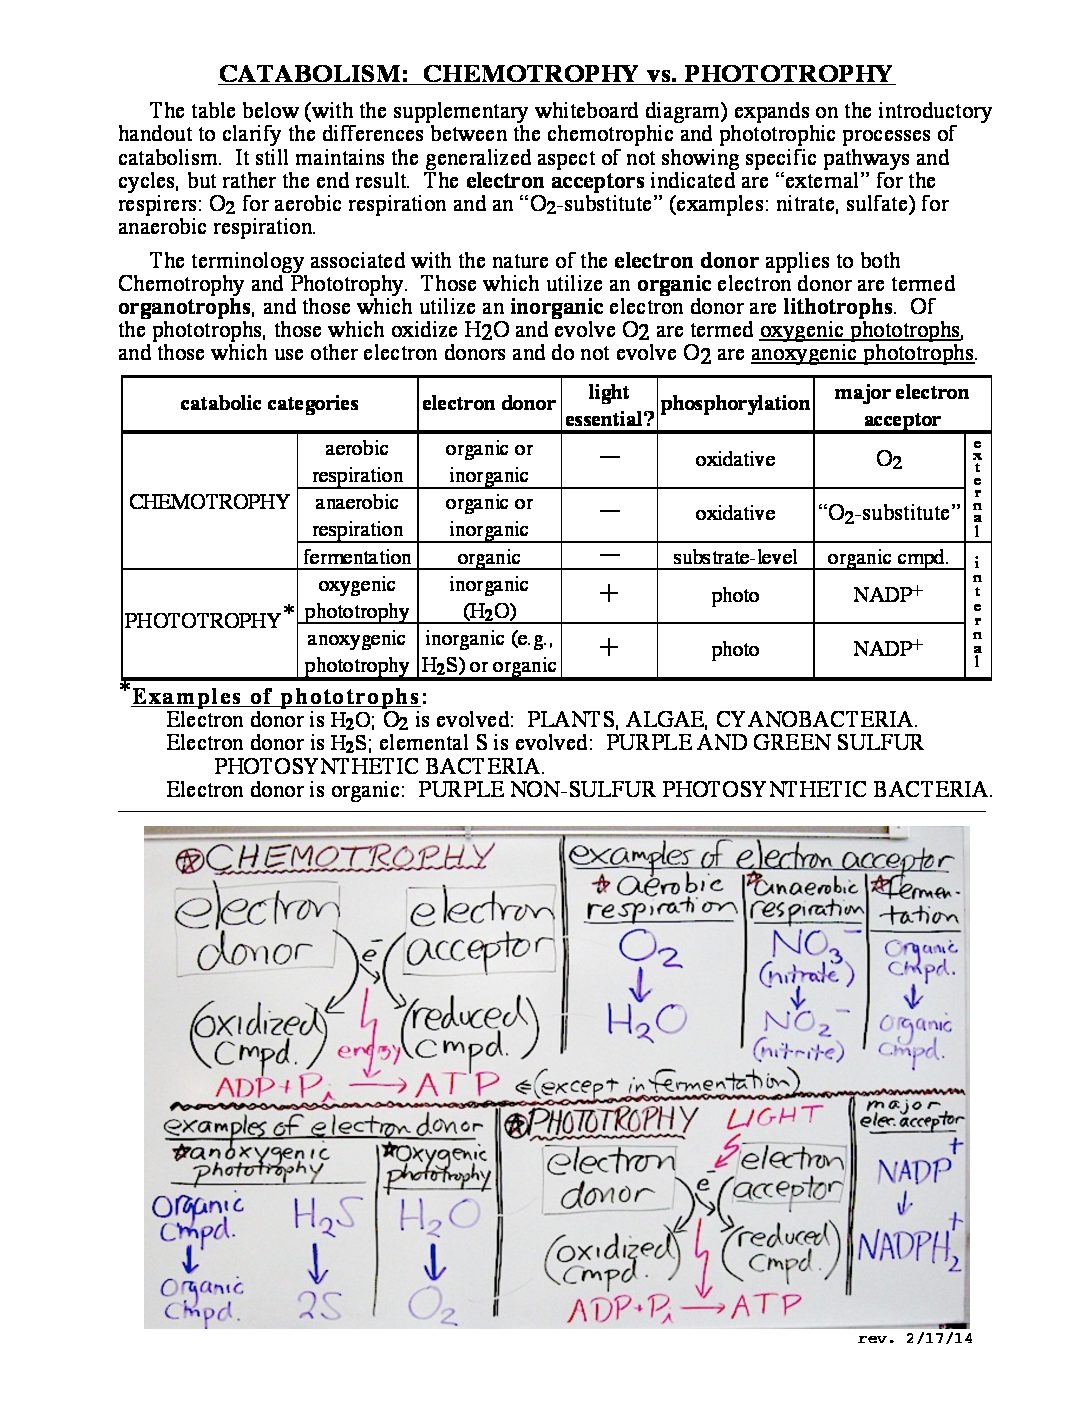 CATABOLISM: CHEMOTROPHY vs. PHOTOTROPHY
The table below (with the supplementary whiteboard diagram) expands on the introductory
handout to clarify the differences between the chemotrophic and phototrophic processes of
catabolism. It still maintains the generalized aspect of not showing specific pathways and
cycles, but rather the end result. The electron acceptors indicated are “external” for the
respirers: O2 for aerobic respiration and an “O2-substitute” (examples: nitrate, sulfate) for
anaerobic respiration.
The terminology associated with the nature of the electron donor applies to both
Chemotrophy and Phototrophy. Those which utilize an organic electron donor are termed
organotrophs, and those which utilize an inorganic electron donor are lithotrophs. Of
the phototrophs, those which oxidize H2O and evolve O2 are termed oxygenic phototrophs,
and those which use other electron donors and do not evolve O2 are anoxygenic phototrophs.
catabolic categories electron donor light essential? phosphorylation major electron acceptor
CHEMOTROPHY
aerobic respiration organic or inorganic — oxidative O2
anaerobic respiration organic or inorganic — oxidative “O2-substitute”
external
fermentation organic — substrate-level organic cmpd.
PHOTOTROPHY*
oxygenic phototrophy inorganic (H2O) + photo NADP+
anoxygenic phototrophy inorganic (e.g., H2S) or organic + photo NADP+
internal
*Examples of phototrophs:
Electron donor is H2O; O2 is evolved: PLANTS, ALGAE, CYANOBACTERIA.
Electron donor is H2S; elemental S is evolved: PURPLE AND GREEN SULFUR
PHOTOSYNTHETIC BACTERIA.
Electron donor is organic: PURPLE NON-SULFUR PHOTOSYNTHETIC BACTERIA.
CHEMOTROPHY
electron donor
electron acceptor
e-
(oxidized Cmpd.)
(reduced Cmpd.)
energy
ADP+Pi → ATP ⇐(except in fermentation)
examples of electron acceptor
aerobic respiration
O2
↓
H2O
anaerobic respiration
NO3-
(nitrate)
↓
NO2-
(nitrite)
fermen-
tation
Organic
Cmpd.
↓
Organic
Cmpd.
examples of electron donor
anoxygenic
phototrophy
Organic
Cmpd.
↓
Organic
Cmpd.
H2S
↓
2S
Oxygenic
phototrophy
H2O
↓
O2
PHOTOTROPHY
LIGHT
electron donor
e-
electron acceptor
(oxidized Cmpd.)
(reduced Cmpd.)
ADP+Pi → ATP
major
elec. acceptor
NADP+
↓
NADPH2+
rev. 2/17/14